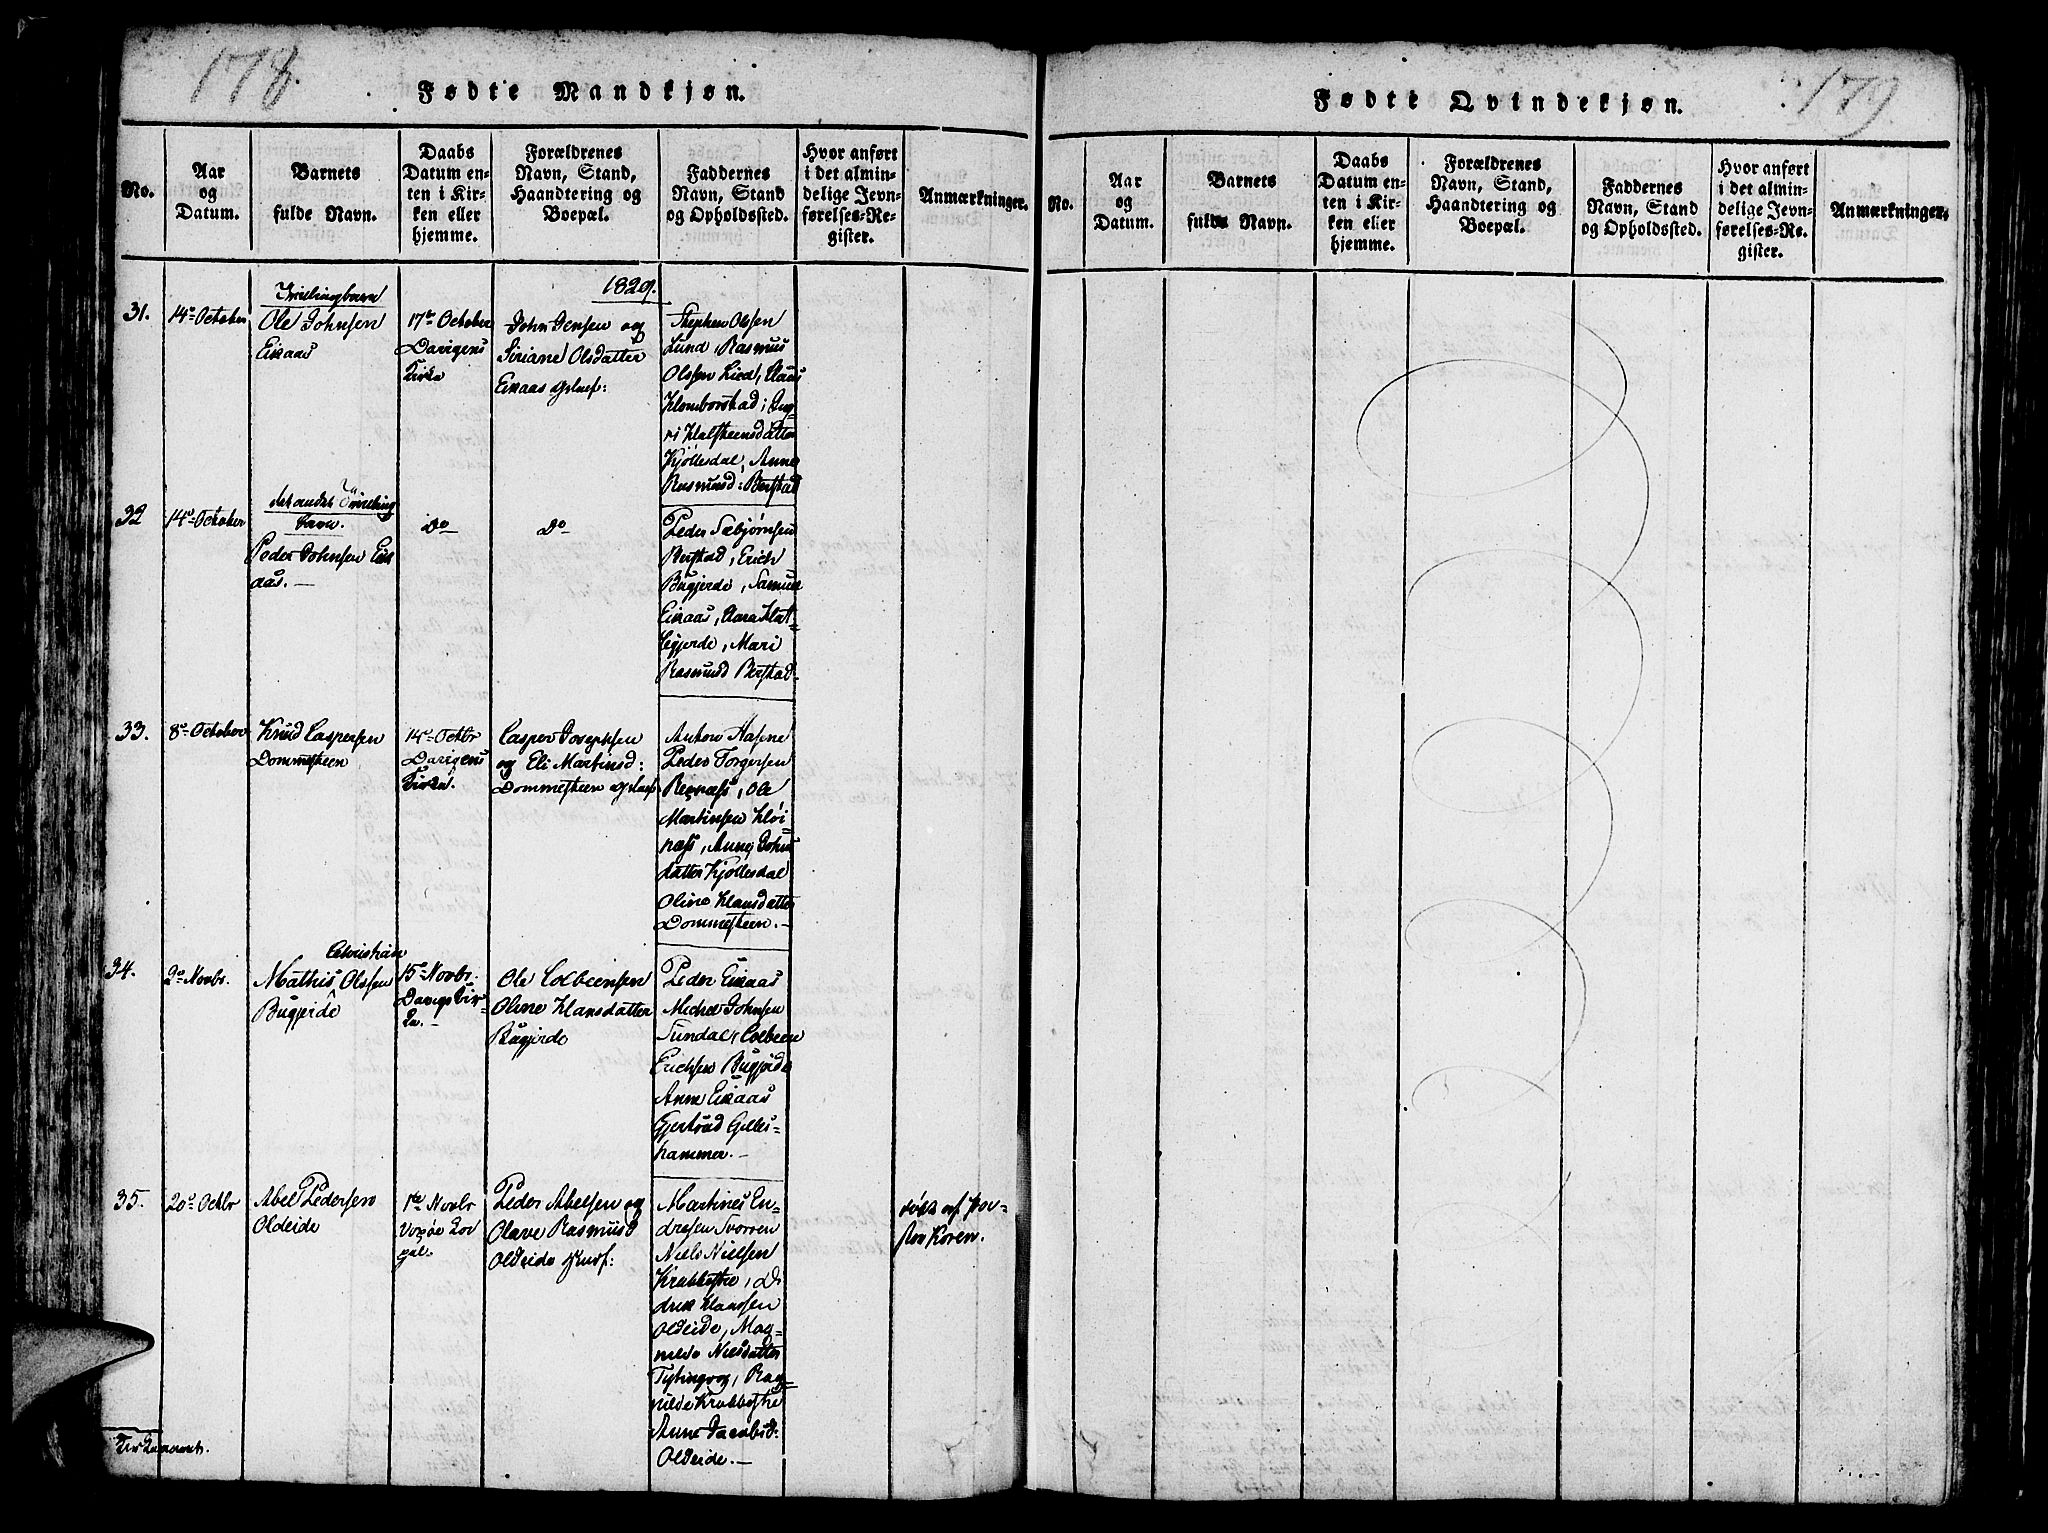 178.
Fødte Mandkjøn.
No.
Aar
og
Datum.
Barnets
fulde Navn.
Daabs
Datum en-
ten i Kir-
ken eller
hjemme.
Forældrenes
Navn, Stand,
Haandtering og
Boepæl.
Faddernes
Navn, Stand
og Opholdssted.
Hvor anført
i det almin-
delige Jevn-
førelses-Re-
gister.
Anmærkninger.
1829.
31.
14de October
Tvillingbarn
Ole Johnsen
Eikaas
17de October
Davigens
Kirke
John Jensen og
Siriane Olsdatter
Eikaas
Stephen Olsen
Lund, Rasmus
Olsen Lied, Claus
Homborstad, Ing-
ri Halsteensdatter
Kjöllesdal, Anne
Rasmusd: Berstad
32
14de October
det andet Tvilling
barn.
Peder Johnsen Eik
aas.—
Do
Do
Peder Sæbjørnsen
Berstad, Erich
Bugjerde, Samuel
Eikaas,
Mari
Rasmusd Berstad
33.
8de October
Knud Caspersen
Dommesteen
14de Octbr
Davigens
Kirke.
Casper Josephsen
og Eli Martinsd:
Dommesteen
Anton Hasene
Peder Torgersen
Ole
Martinsen Høi-
næss, Anne Johns
datter Kjöllesdal
Oline Hansdatter
Dommesteen.—
34.
2de Novbr.
Christian
Mathis Olssen
Bugjerde
15de Novbr.
Davigs Kir-
ke.—
Ole Colbeensen
Oline Hansdatter
Bugjerde
Peder Eikaas
Michel Johnsen
Sundal, Colbeen
Erichsen Bugjerde
Anne Eikaas
Gjertrud Gilles-
hammer.—
35.
20de Octbr
Abel Pedersen
Oldeide
1ste Novbr
Peder Abelsen og
Olave Rasmusd
Oldeide
Martines En-
dresen Tvorren
Niels Nielsen
Krabbestre, Di
drik Claussen
Oldeide, Mag-
nilde Nielsdatter
Tytingvog, Rag-
nilde Krabbestre
Anne Jacobsd:
Oldeide.—
døbt af Pa-
stor Koren.
179.
Fødte Qvindekjøn.
No.
Aar
og
Datum.
Barnets
fulde Navn.
Daabs
Datum en-
ten i Kir-
ken eller
hjemme.
Forældrenes
Navn, Stand,
Haandtering og
Boepæl.
Faddernes
Navn, Stand
og Opholdssted.
Hvor anført
i det almin-
delige Jevn-
førelses-Re-
gister.
Anmærkninger.